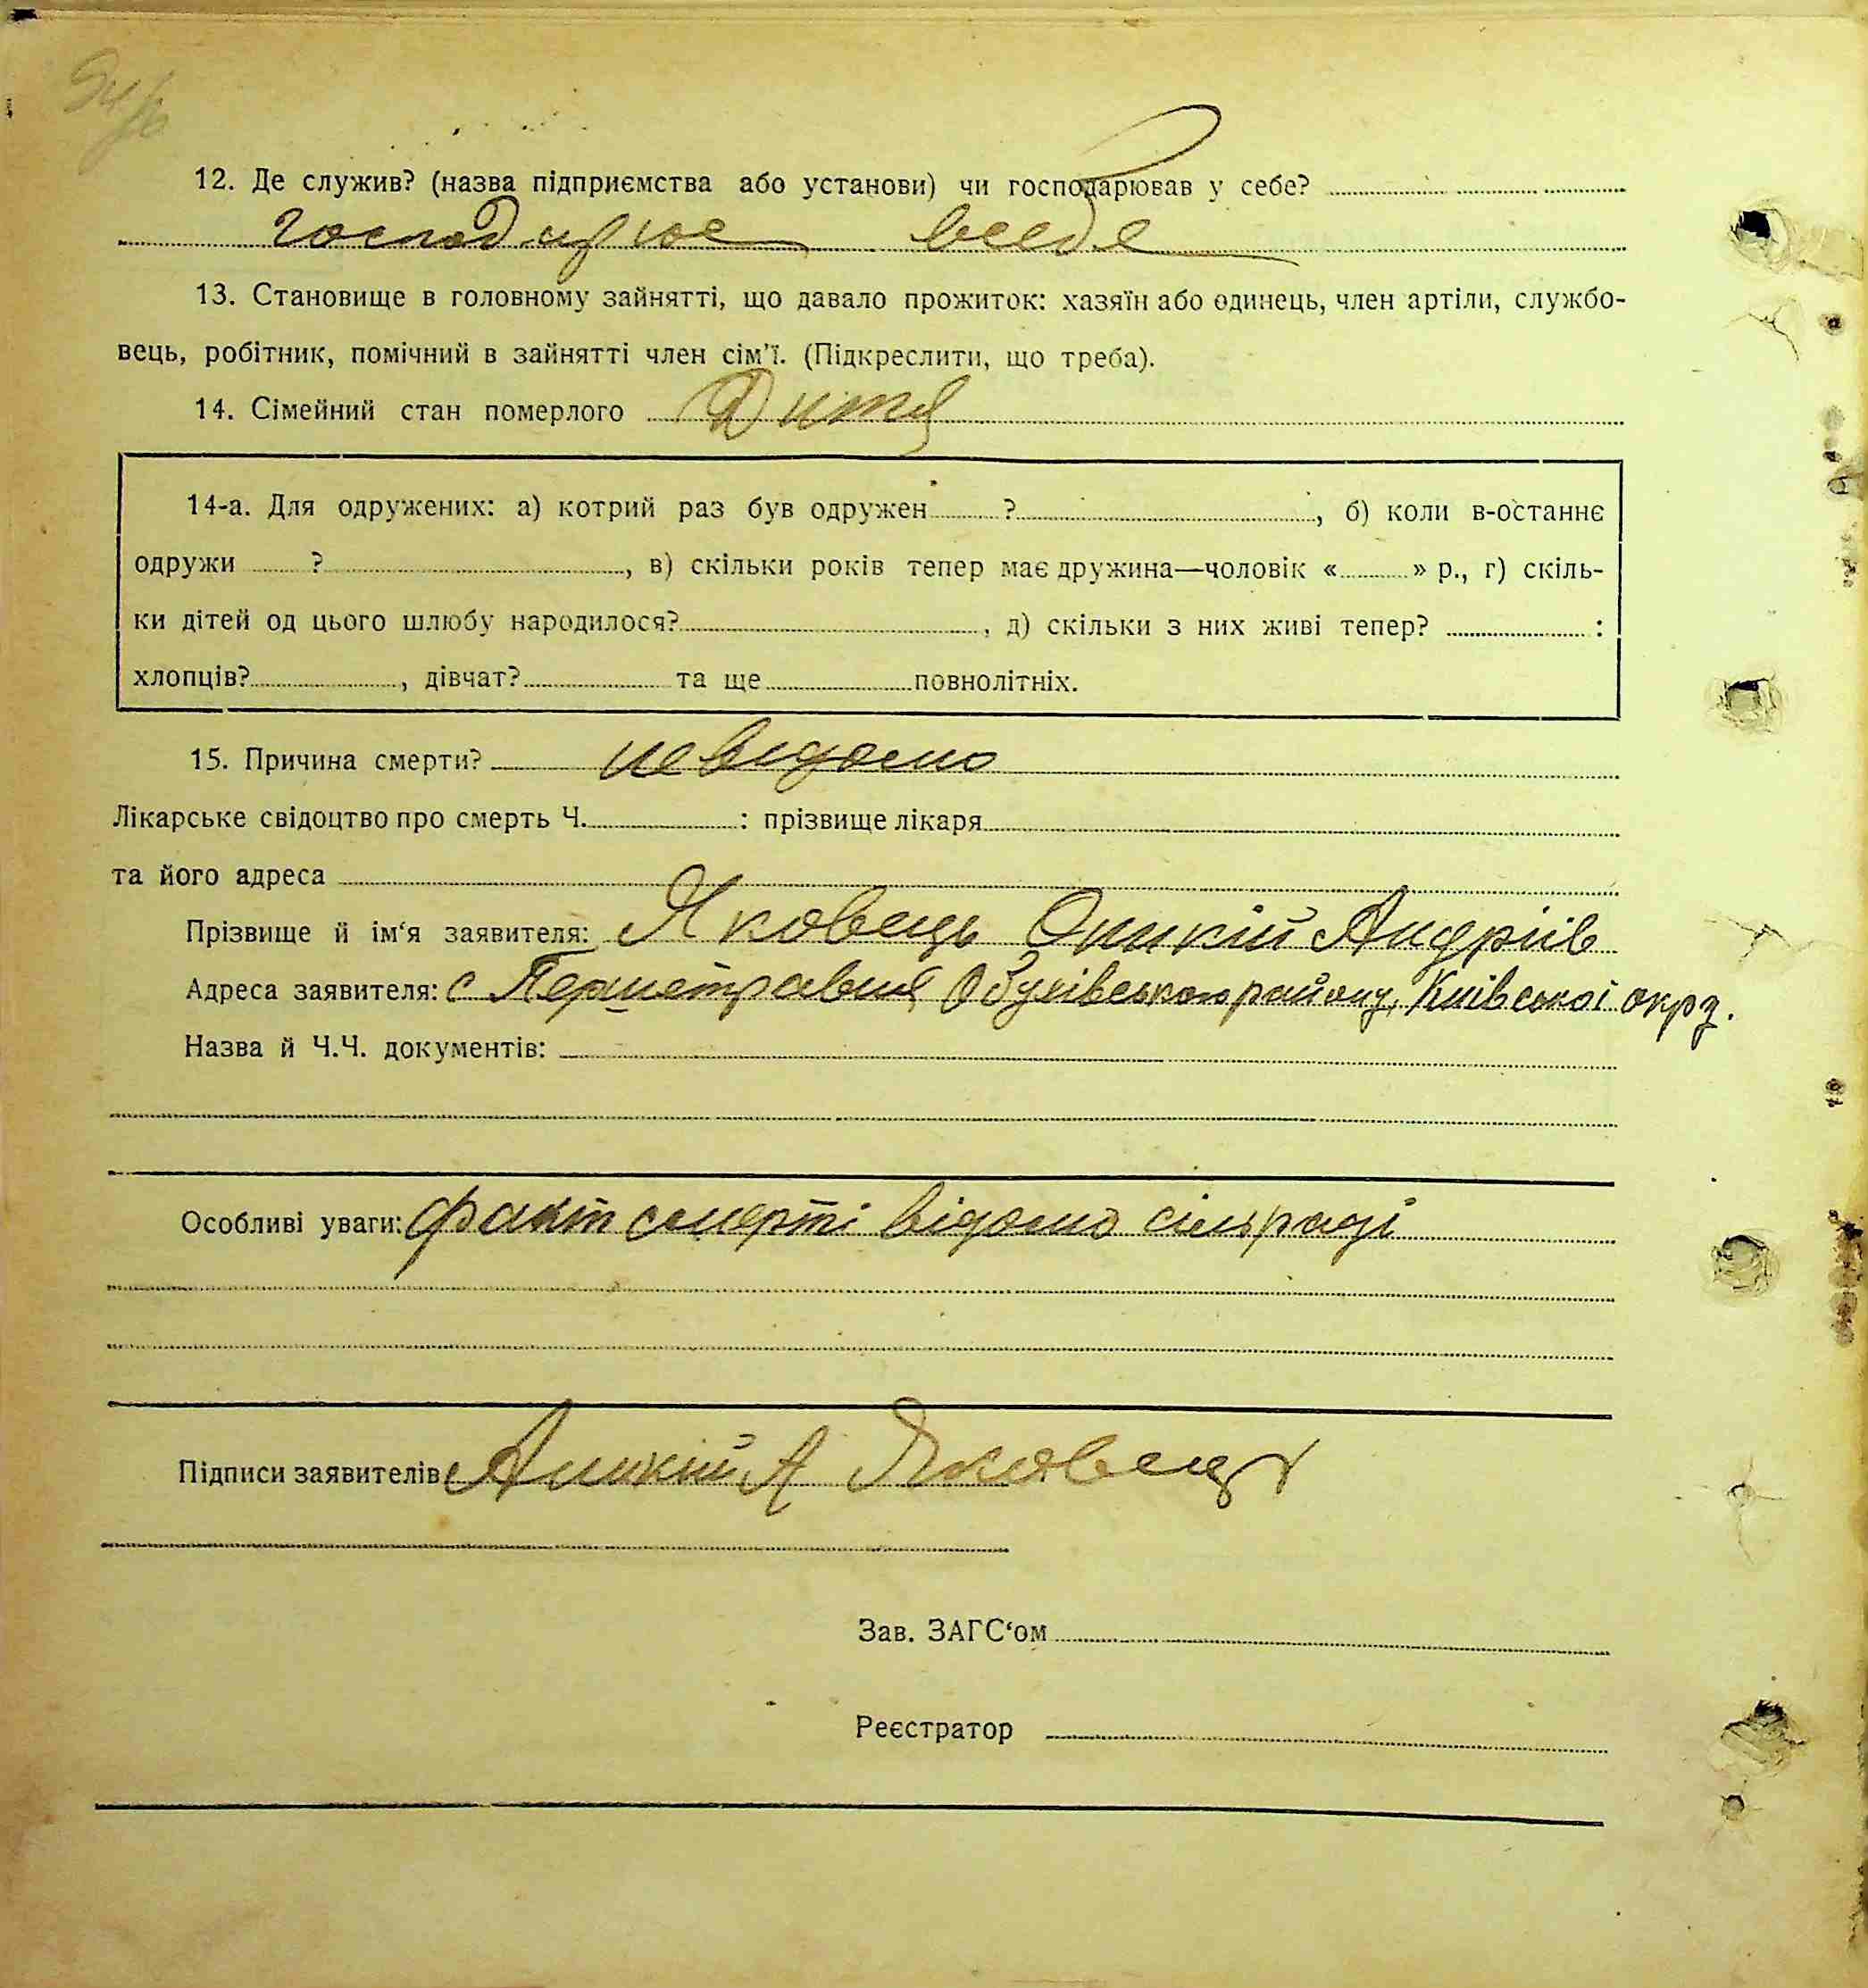 12. Де служив? (назва підприємства або установи) чи господарював у себе?
господарює в себе
13. Становище в головному зайнятті, що давало прожиток: хазяїн або одинець, член артіли, службо-
вець, робітник, помічний в зайнятті член сім'ї. (Підкреслити, що треба).
14. Сімейний стан померлого Дитя
14-а. Для одружених: а) котрий раз був одружен ? , б) коли в-останнє
одружи ? , в) скільки років тепер має дружина—чоловік « » р., г) скіль-
ки дітей од цього шлюбу народилося? , д) скільки з них живі тепер? :
хлопців? , дівчат? та ще повнолітніх.
15. Причина смерти? невідомо
Лікарське свідоцтво про смерть Ч. : прізвище лікаря
та його адреса
Прізвище й ім'я заявителя: Яковець Оникій Андріїв
Адреса заявителя: с Першетравня Обухівського району, Київської окр.
Назва й Ч.Ч. документів:
Особливі уваги: факт смерті відомо сільраді
Підписи заявителів Аникій А Яковець
Зав. ЗАГС'ом
Реєстратор